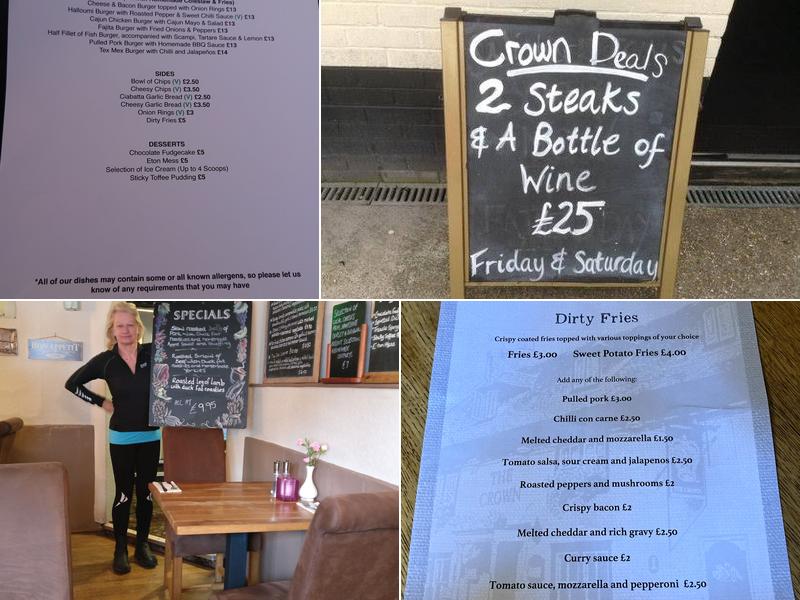 Homemade Coleslaw & Fries)
Cheese & Bacon Burger topped with Onion Rings £13
Halloumi Burger with Roasted Pepper & Sweet Chilli Sauce (V) £13
Cajun Chicken Burger with Cajun Mayo & Salad £13
Fajita Burger with Fried Onions & Peppers £13
Half Fillet of Fish Burger, accompanied with Scampi, Tartare Sauce & Lemon £13
Pulled Pork Burger with Homemade BBQ Sauce £13
Tex Mex Burger with Chilli and Jalapeños £14
SIDES
Bowl of Chips (V) £2.50
Cheesy Chips (V) £3.50
Ciabatta Garlic Bread (V) £2.50
Cheesy Garlic Bread (V) £3.50
Onion Rings (V) £3
Dirty Fries £5
DESSERTS
Chocolate Fudgecake £5
Eton Mess £5
Selection of Ice Cream (Up to 4 Scoops)
Sticky Toffee Pudding £5
*All of our dishes may contain some or all known allergens, so please let us
know of any requirements that you may have
Crown Deals
2 Steaks
& A Bottle of
Wine
£25
Friday & Saturday
BON APPETIT
SPECIALS
Slow roasted belly of
Pork with Duck Fat
Roasties and homemade
Apple Sauce
Roasted Brisket of
Beef with Duck fat
roasties and homemade
Yorkies
Roasted leg of lamb
with duck fat roasties
ALL AT
£9.95
Dirty Fries
Crispy coated fries topped with various toppings of your choice
Fries £3.00 Sweet Potato Fries £4.00
Add any of the following:
Pulled pork £3.00
Chilli con carne £2.50
Melted cheddar and mozzarella £1.50
Tomato salsa, sour cream and jalapenos £2.50
Roasted peppers and mushrooms £2
Crispy bacon £2
Melted cheddar and rich gravy £2.50
Curry sauce £2
Tomato sauce, mozzarella and pepperoni £2.50
THE
CROWN